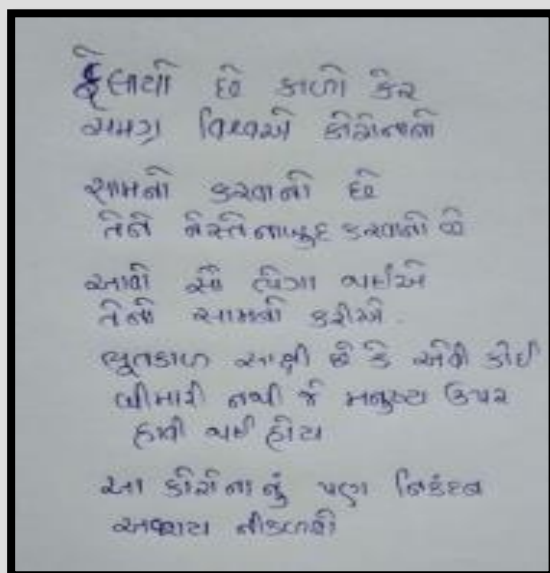 ફેલાયો છે કાળો કેર
સમગ્ર વિશ્વએ કોરોનાનો
સામનો કરવાનો છે
તેને નેસ્તેનાબૂદ કરવાનો છે
આવો સૌ ભેગા થઈએ
તેનો સામનો કરીએ.
ભૂતકાળ સાક્ષી છે કે એવી કોઈ
બીમારી નથી જે મનુષ્ય ઉપર
હાવી થઈ હોય
આ કોરોનાનું પણ નિકંદન
અવશ્ય નીકળશે